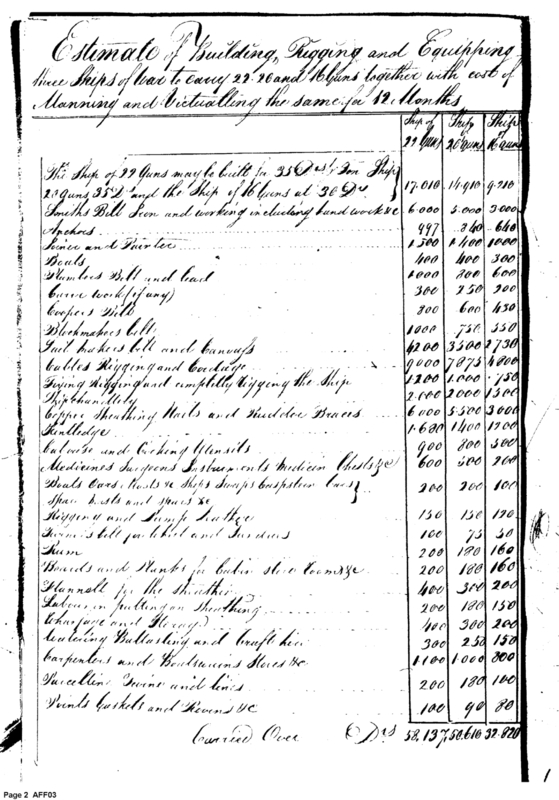 Estimate of Building, Rigging and Equipping
three Ships of War to carry 22. 20 and 16 Guns together with cost of
Manning and Victualling the same for 12 Months
Ship of 22 Guns Ship of 20 Guns Ship 16 Guns
The Ship of 22 Guns may be built for 35 Drs P Ton Ship
20 Guns 35 D and the Ship of 16 Guns at 30 Ds 17.010 14.910 9.210
Smiths Bill Iron and working including hand work &c 6.000 5.000 3.000
Anchors 997 840 640
Joiner and Painter 1500 1400 1000
Boats 400 400 300
Plumbers Bill and lead 1000 800 600
Carve work (if any) 300 250 200
Coopers Bill 800 600 450
Blockmakers bill 1000 750 550
Sail makers bill and Canvass 4200 3500 2730
Cables Rigging and Cordage 9000 7875 4800
Fixing Rigging and completly Rigging the Ship 1200 1.000 750
Shipchandlery 2.000 2000 1500
Copper Sheathing Nails and Rudder Braces 6000 5.500 3000
Kentledge 1.680 1400 1200
Caboose and Cooking Utensils 900 800 500
Medicines Surgeons Instruments Medicin Chests &c 600 500 200
Boats Oars Masts &c Ships Sweeps Capstern bars
spare Masts and spars &c 200 200 100
Rigging and Pump Leather 150 150 120
Turners bill for 100 75 50
Rum 200 180 160
Boards and Planks for Cabin Store Rooms &c 200 180 160
Flannell for the Sheather 400 300 200
Labour in putting on Sheathing 200 180 150
Wharfage and Storage 400 300 200
Watering Ballasting and Craft hire 300 250 150
Carpenters and Boatswains Stores &c 1100 1.000 800
Parcelline Twine and lines 200 180 100
Points Gaskets and Rovens &c 100 90 80
Carried Over Drs 58.137 50.610 32.820
1
Page 2 AFF03